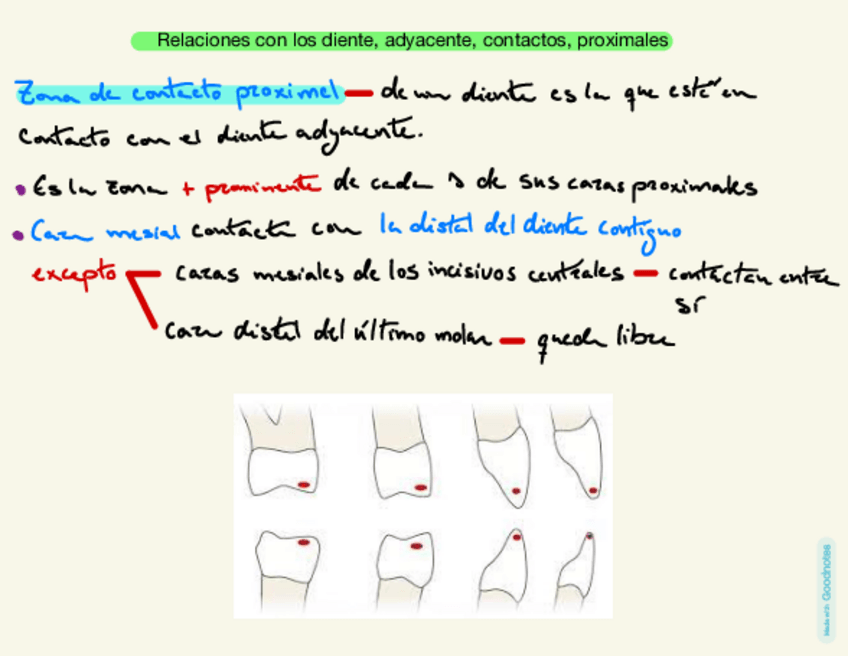 Relaciones con los diente, adyacente, contactos, proximales
Zona de contacto proximel — de un diente es la que está en
contacto con el diente adyacente.
• Es la zona + prominente de cada 1 de sus caras proximales
• Cara mesial contacta con la distal del diente contiguo
excepto — caras mesiales de los incisivos centrales — contactan entre
sí
cara distal del último molar — queda libre
Made with Goodnotes